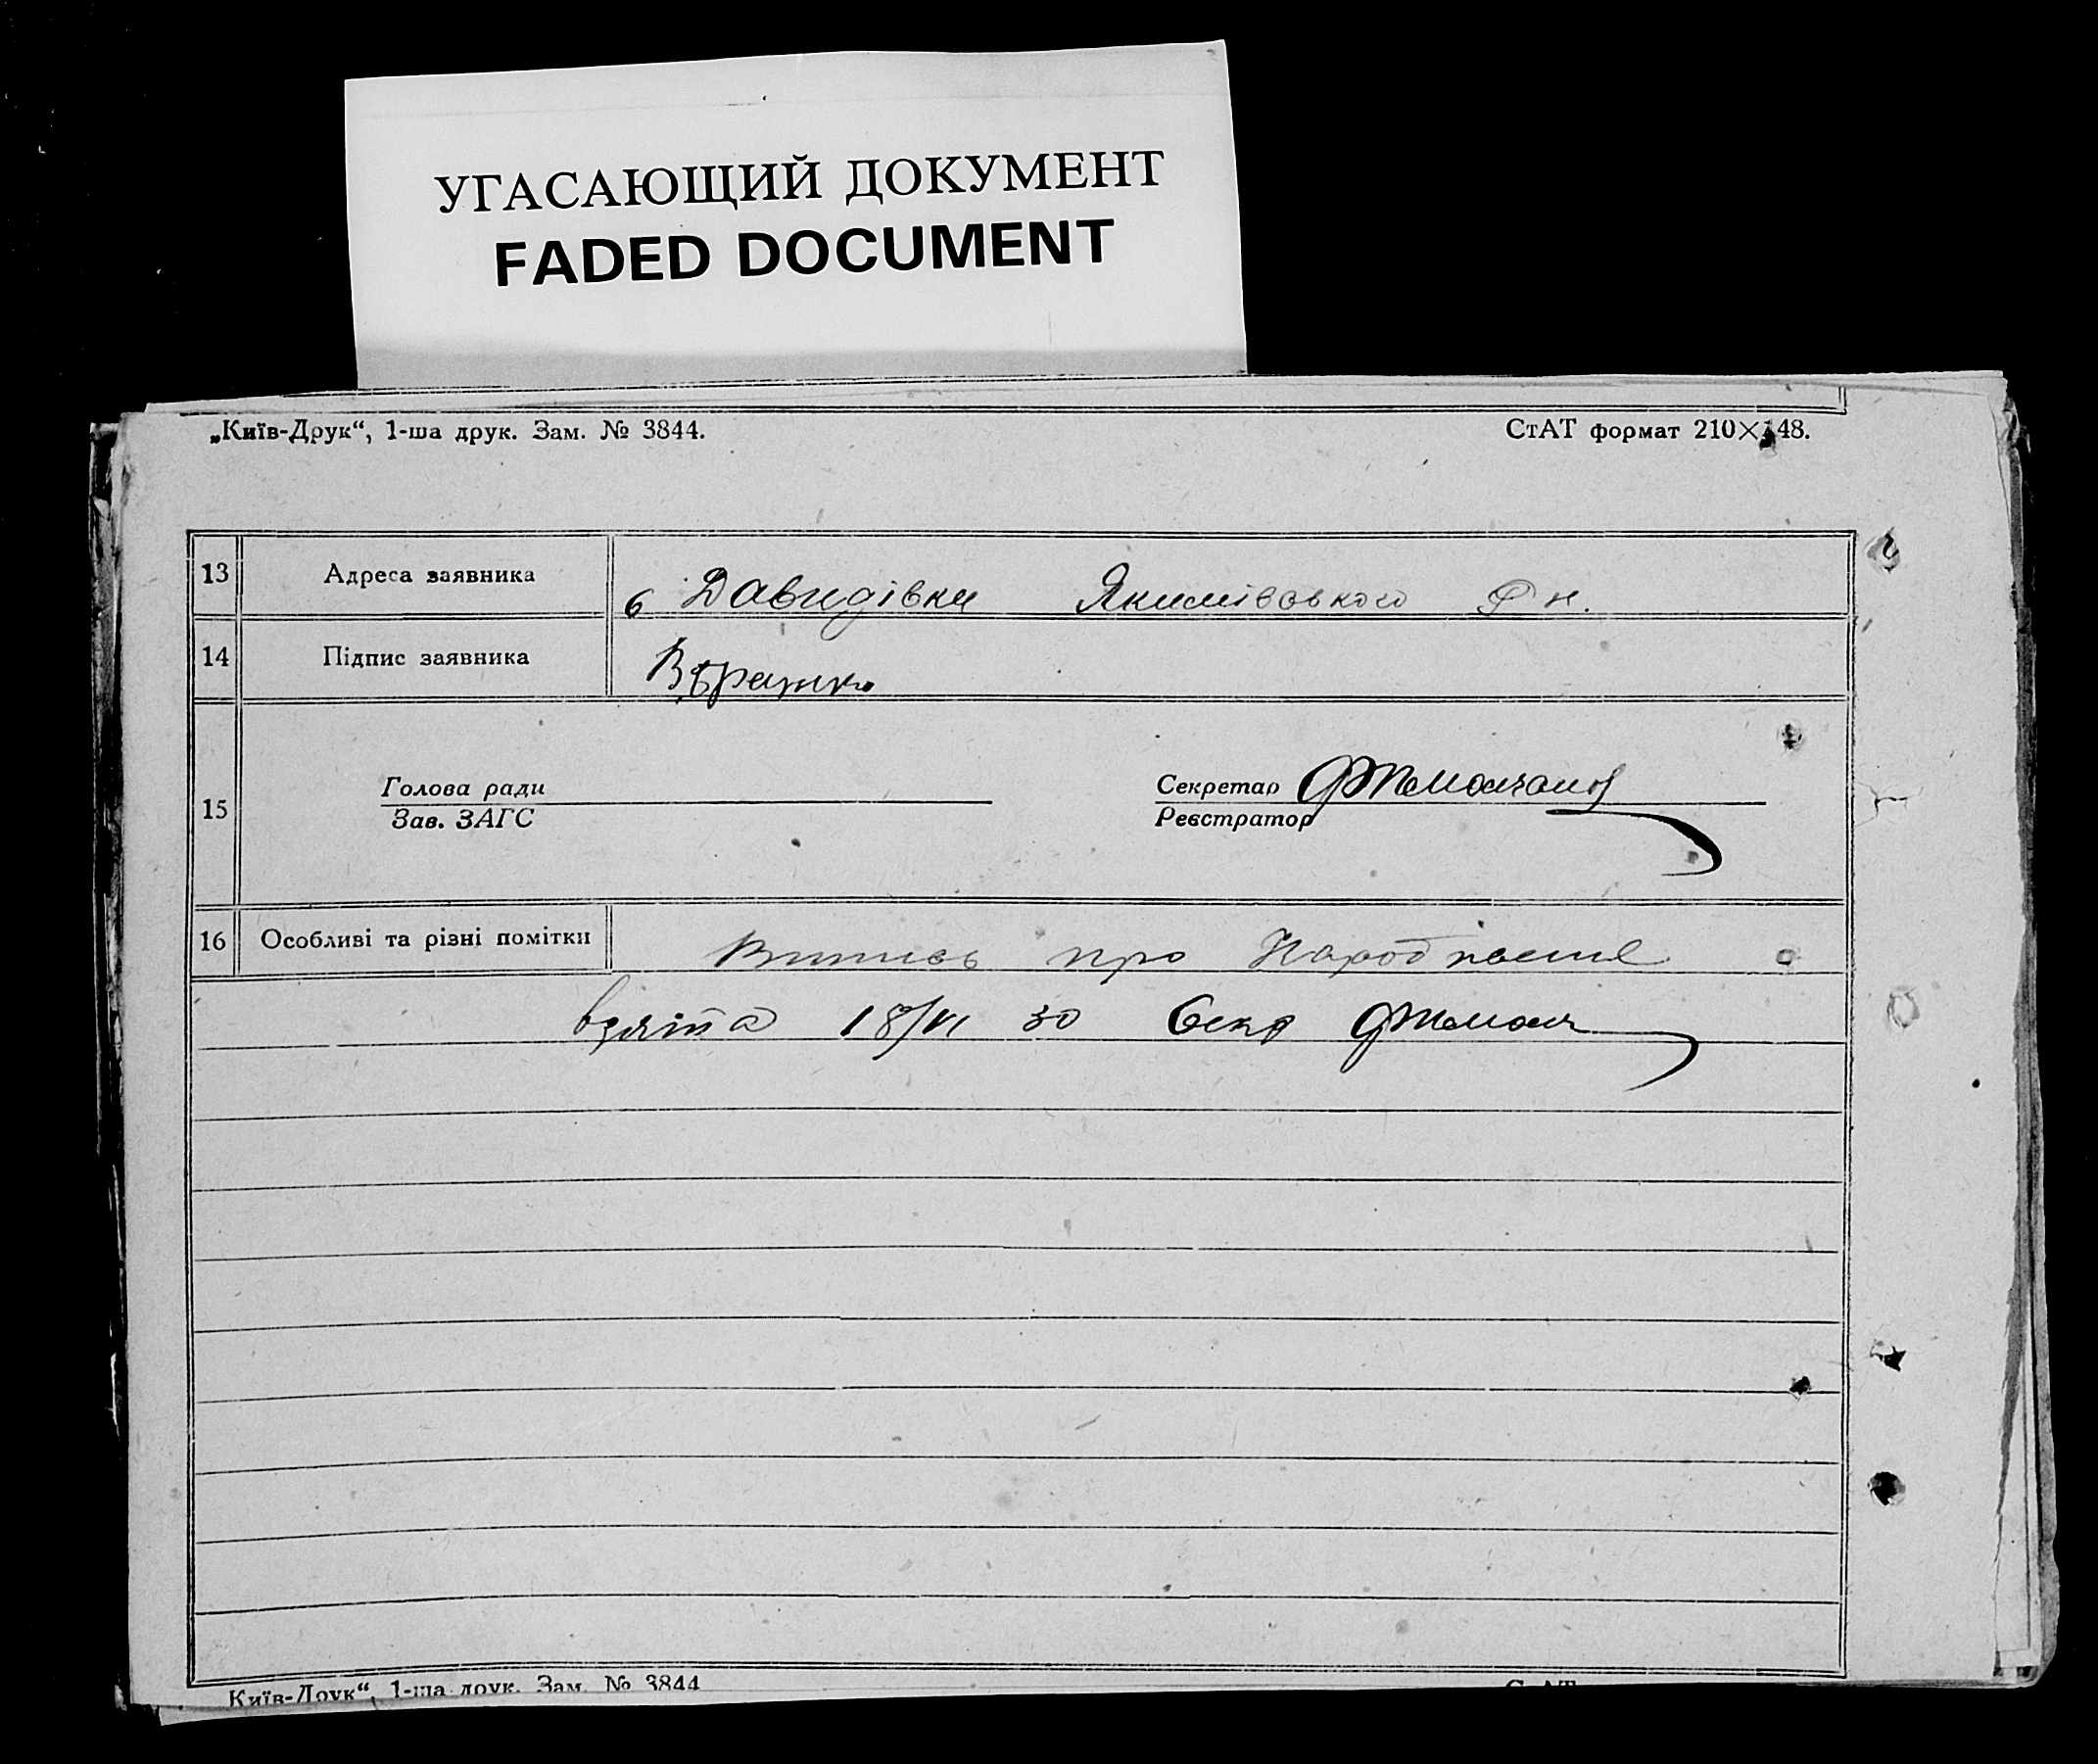 УГАСАЮЩИЙ ДОКУМЕНТ
FADED DOCUMENT
„Київ-Друк“, 1-ша друк. Зам. № 3844.
СтАТ формат 210×148.
13 Адреса заявника с Давидівки Якимівського Рн.
14 Підпис заявника
15 Голова ради
Зав. ЗАГС
Секретар
Реєстратор
16 Особливі та різні помітки Випись про Народження
взята 18/VI 30 Секр
Київ-Друк“, 1-ша друк. Зам. № 3844
СтАТ